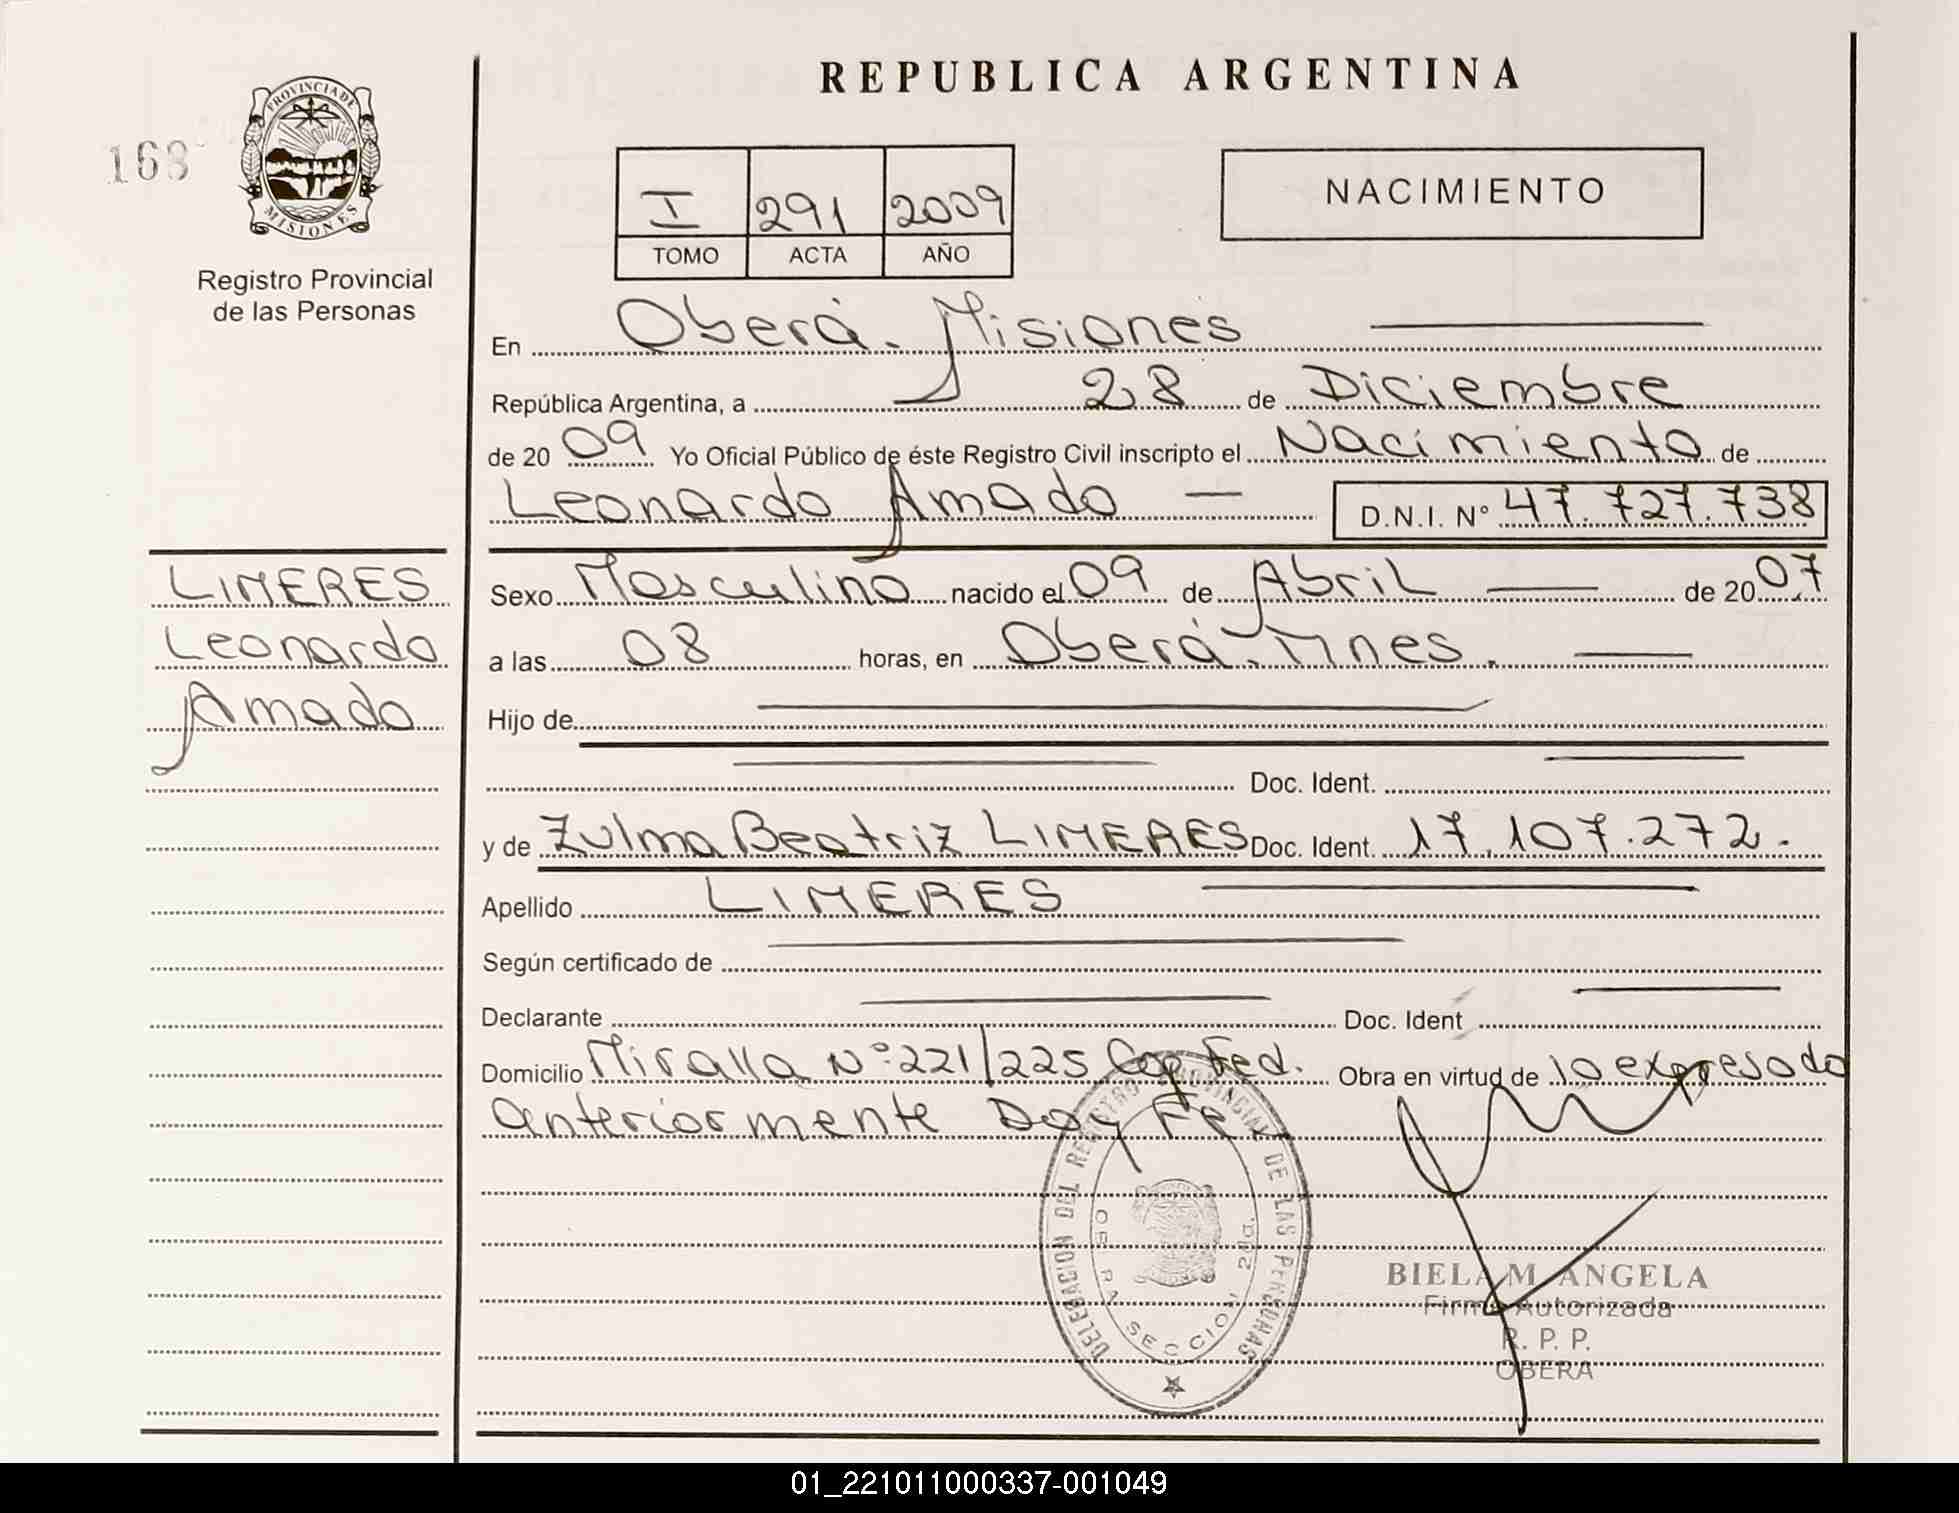 REPUBLICA ARGENTINA
168
PROVINCIA DE
MISIONES
Registro Provincial
de las Personas
I 291 2009
TOMO ACTA AÑO
NACIMIENTO
En Oberá. Misiones
República Argentina, a 28 de Diciembre
de 20 09 Yo Oficial Público de éste Registro Civil inscripto el Nacimiento de
Leonardo Amado — D.N.I. N° 47.727.738
LIMERES
Leonardo
Amado
Sexo Masculino nacido el 09 de Abril — de 20 07
a las 08 horas, en Oberá. Mnes. —
Hijo de
Doc. Ident.
y de Zulma Beatriz LIMERES Doc. Ident. 17.107.272.
Apellido LIMERES
Según certificado de
Declarante Doc. Ident
Domicilio Miralla N° 221/225 Cap Fed. Obra en virtud de lo expresado
anteriormente Doy Fe
DELEGACION DEL REGISTRO PROVINCIAL DE LAS PERSONAS
OBERA SECCION 2da.
BIELA M. ANGELA
Firma Autorizada
R. P. P.
OBERA
01_221011000337-001049